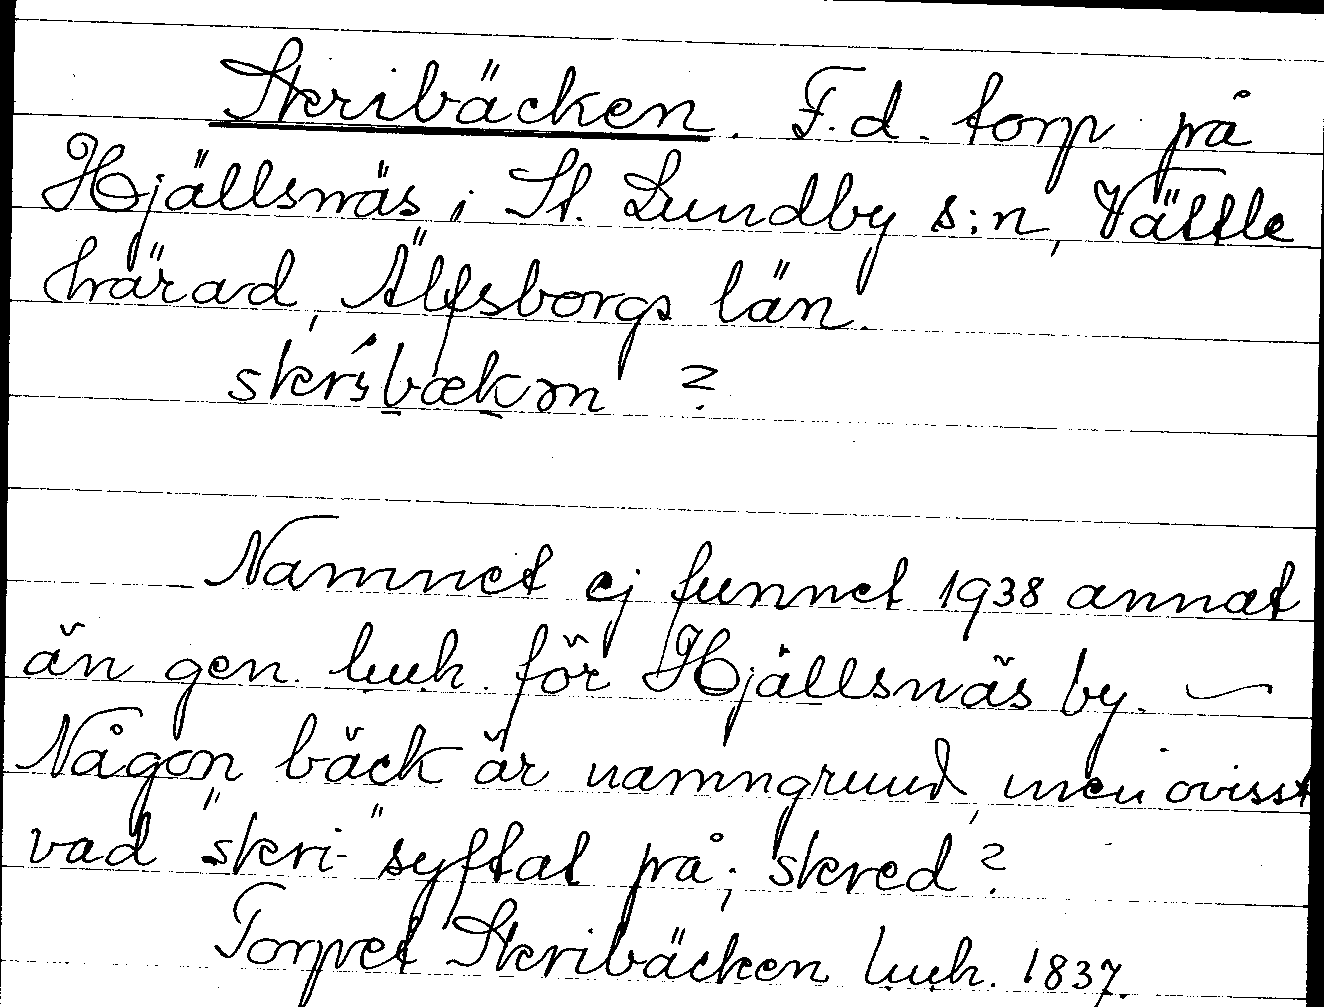 Skribäcken. F.d. torp på
Hjällsnäs i St. Lundby s:n, Vättle
härad, Älfsborgs län.
skri̍bækən ?
Namnet ej funnet 1938 annat
än gen. huh. för Hjällsnäs by. —
Någon bäck är namngrund, men ovisst
vad "skri-" syftat på; skred?
Torpet Skribäcken huh. 1837.